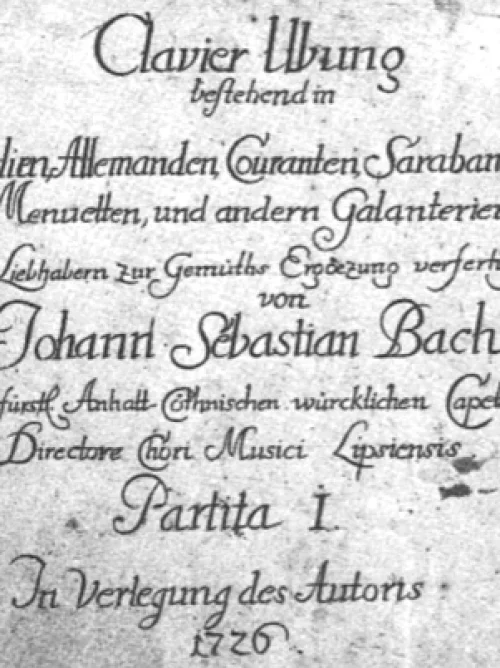 Clavier Ubung
bestehend in
lien, Allemanden, Couranten, Saraban
Menuetten, und andern Galanterien
Liebhabern zur Gemüths Ergoezung verfert
von
Johann Sebastian Bach
fürstl. Anhalt-Cöthnischen würcklichen Capel
Directore Chori Musici Lipsiensis.
Partita I.
In Verlegung des Autoris
1726.